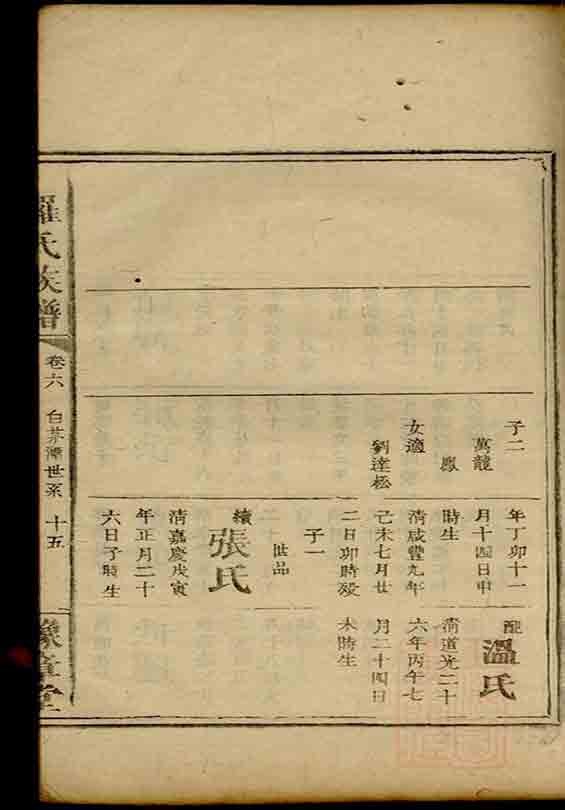 子二
萬龍
鳳
女適
劉達松
年丁卯十一
月十四日申
時生
清咸豐九年
己未七月廿
二日卯時歿
子一
世品
續
張氏
清嘉慶戊寅
年正月二十
六日子時生
配
溫氏
清道光二十
六年丙午七
月二十四日
未時生
羅氏族譜
卷六
世系
十五
豫章堂